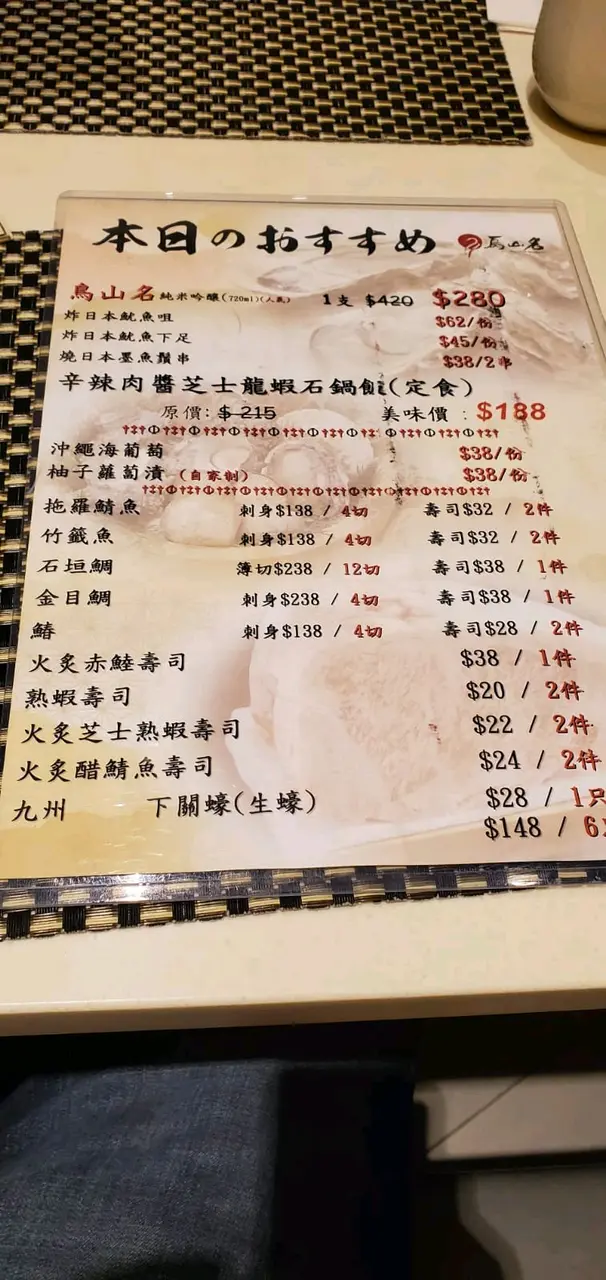 本日のおすすめ 鳥山名
鳥山名 純米吟釀(720ml)(人氣) 1支 $420 $280
炸日本魷魚咀 $62/份
炸日本魷魚下足 $45/份
燒日本墨魚鬚串 $38/2串
辛辣肉醬芝士龍蝦石鍋飯(定食)
原價: $215 美味價 : $188
沖繩海葡萄 $38/份
柚子蘿蔔漬 (自家制) $38/份
拖羅鯖魚 刺身$138 / 4切 壽司$32 / 2件
竹籤魚 刺身$138 / 4切 壽司$32 / 2件
石垣鯛 薄切$238 / 12切 壽司$38 / 1件
金目鯛 刺身$238 / 4切 壽司$38 / 1件
鰆 刺身$138 / 4切 壽司$28 / 2件
火炙赤鯥壽司 $38 / 1件
熟蝦壽司 $20 / 2件
火炙芝士熟蝦壽司 $22 / 2件
火炙醋鯖魚壽司 $24 / 2件
九州 下關蠔(生蠔) $28 / 1只
$148 / 6